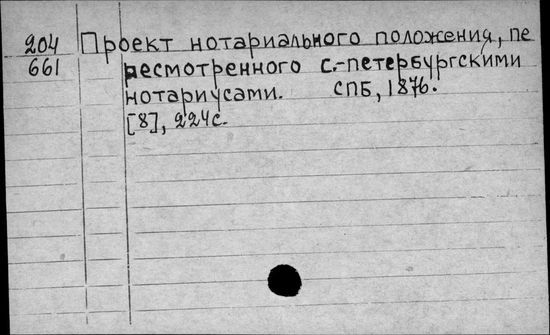 204 Проект нотариального положения, пе
661 ресмотренного с.-петербургскими
нотариусами. СПБ, 1876.
[8], 224с.